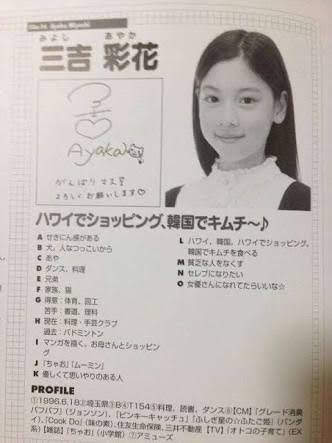 File.14 Ayaka Miyoshi
みよし あやか
三吉 彩花
Ayaka
がんばります
よろしくお願いします♡
ハワイでショッピング、韓国でキムチ〜♪
A せきにん感がある
B 犬、人なつっこいから
C あや
D ダンス、料理
E 兄弟
F 家族、猫
G 得意：体育、図工
苦手：書道、理科
H 現在：料理・手芸クラブ
過去：バドミントン
I マンガを描く、お母さんとショッピ
ング
J 「ちゃお」「ムーミン」
K 優しくて思いやりのある人
L ハワイ、韓国。ハワイでショッピング、
韓国でキムチを食べる
M 貧乏な人をなくす
N セレブになりたい
O 女優さんになれてたらいいな☆
PROFILE
①1996.6.18②埼玉県③B④T154⑤料理、読書、ダンス⑥【CM】「グレード消臭
パフパフ」(ジョンソン)、「ピンキーキャッチュ」「ふしぎ星の☆ふたご姫」(バンダ
イ)、「Cook Do」(味の素)、住友生命保険、三井不動産【TV】「オトコの子育て」(EX
系)【雑誌】「ちゃお」(小学館)⑦アミューズ